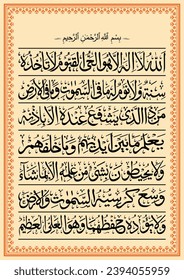 بِسْمِ اللَّهِ الرَّحْمَٰنِ الرَّحِيمِ
الله لا إله إلا هو الحي القيوم لا تأخذه
سنة ولا نوم له ما في السموات وما في الأرض
من ذا الذي يشفع عنده إلا بإذنه
يعلم ما بين أيديهم وما خلفهم
ولا يحيطون بشيء من علمه إلا بما شاء
وسع كرسيه السموات والأرض
ولا يؤده حفظهما وهو العلي العظيم
shutterstock.com · 2394055959